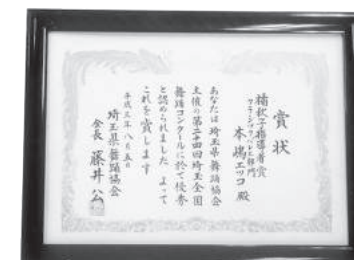 賞状
指導者賞
クラシックバレエ部門
本嶋エツコ 殿
あなたは埼玉県舞踊協会
主催の第二十四回埼玉全国
舞踊コンクールに於て優秀
と認められました よって
これを賞します
平成三年八月五日
埼玉県舞踊協会
会長 藤井公